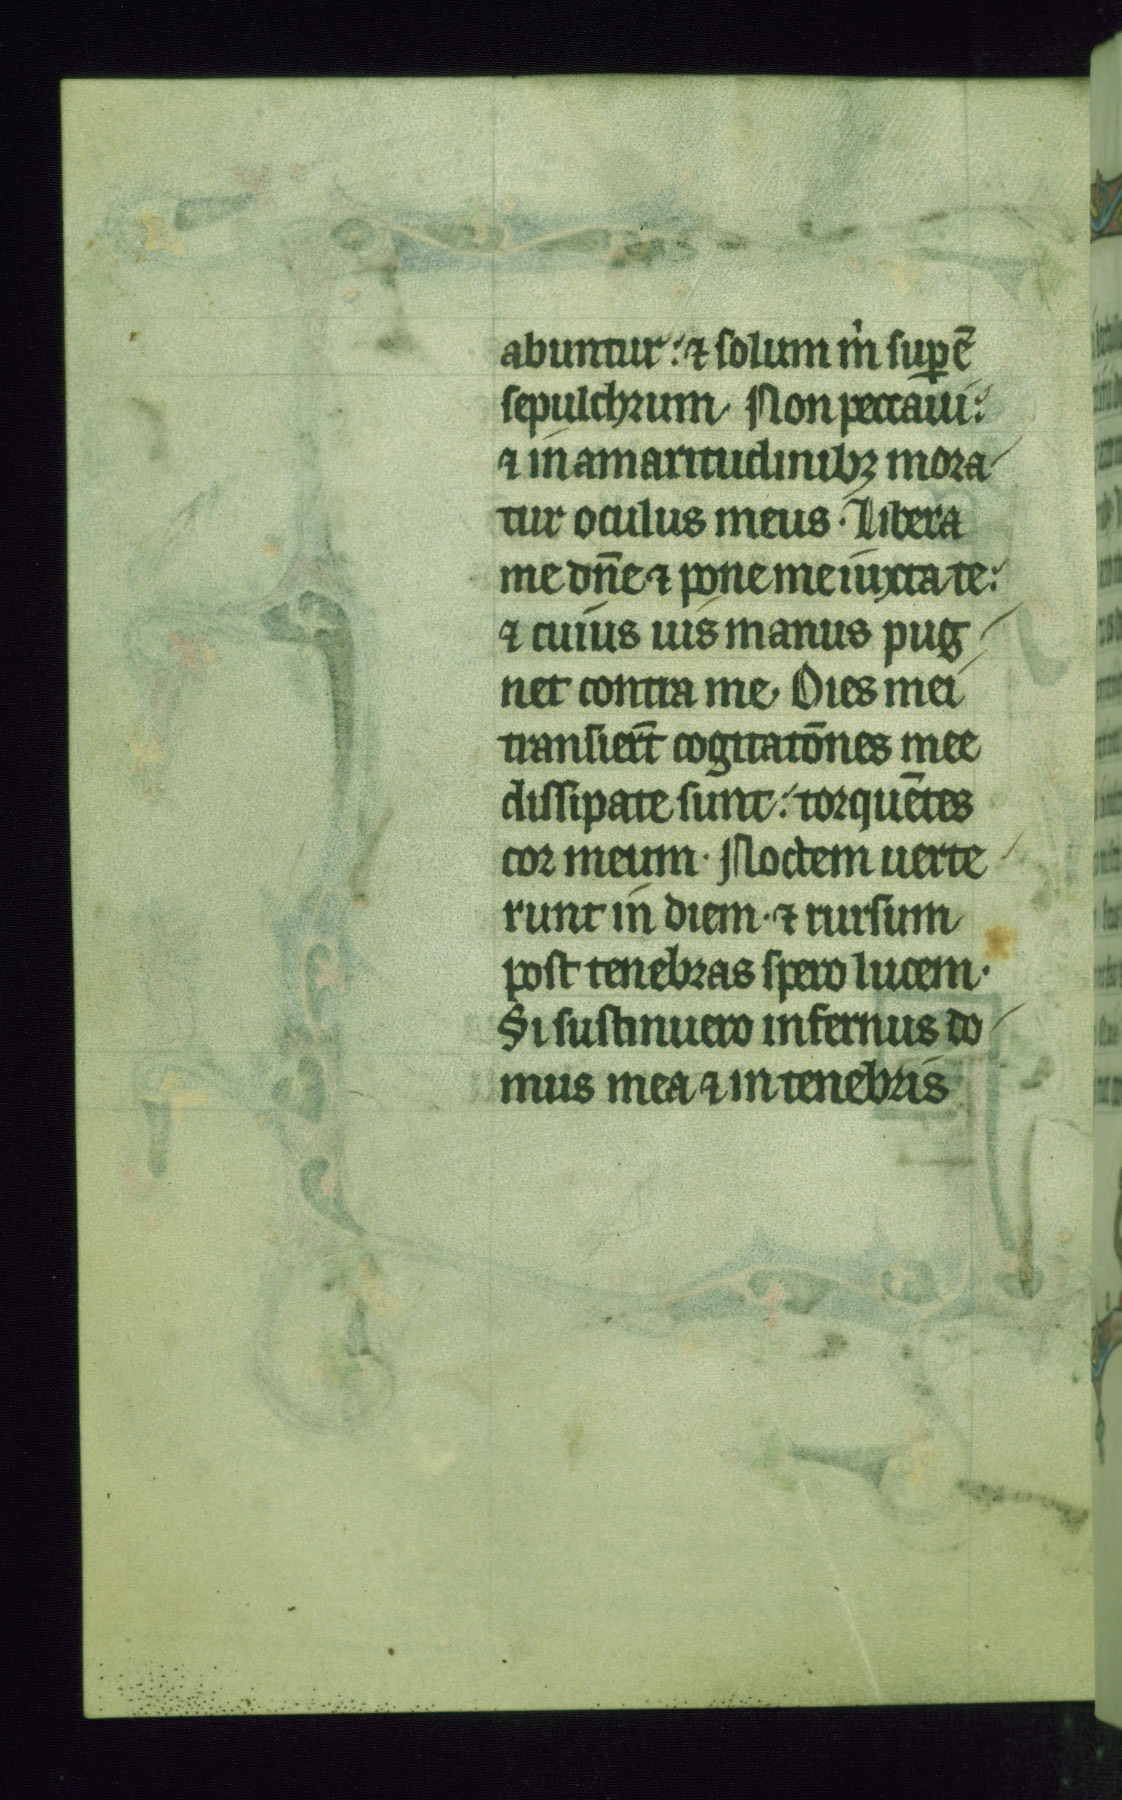 abuntur: ⁊ solum m̍ suꝑē
sepulchrum Non peccaui:
⁊ in amaritudinibꝫ mora
tur oculus meus. Libera
me dn̄e ⁊ pone me iuxta te:
⁊ cuius uis manus pug
net contra me, Dies mei
transiert̄ cogitatōnes mee
dissipate sunt: torquētes
cor meum. Noctem uerte
runt in diem. ⁊ rursum
post tenebras spero lucem.
Si sustinuero infernus do
mus mea ⁊ in tenebris